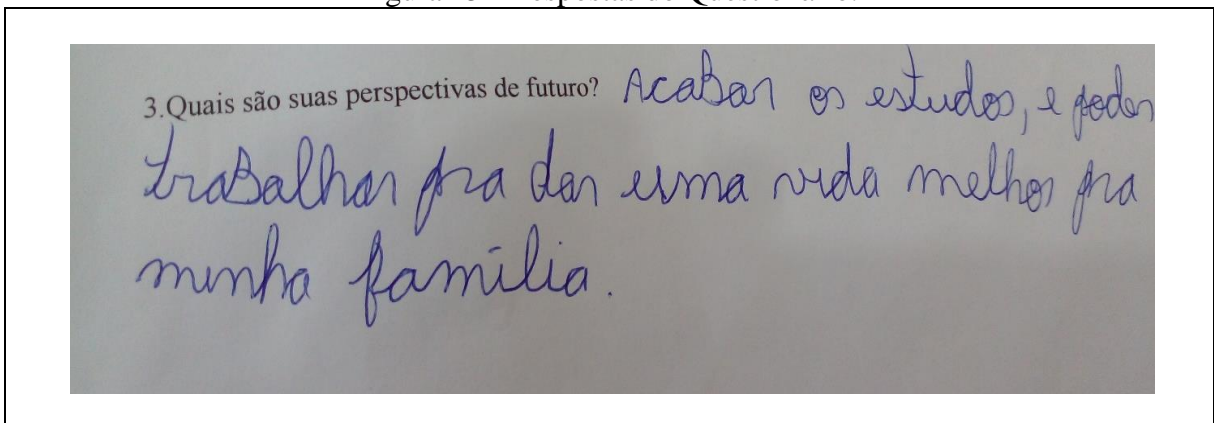 3.Quais são suas perspectivas de futuro? Acabar os estudos, e poder
trabalhar pra dar uma vida melhor pra
minha família.